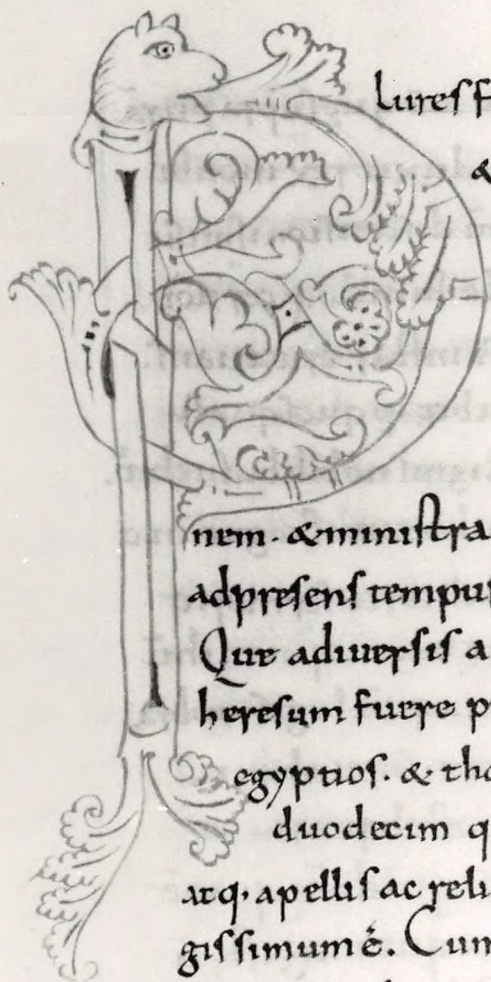 Plures f
&
nem · & ministra
adpresens tempus
Que adiversis a
heresum fuere p
egyptios. & tho
duodecim q
atq. apellis ac reli
gissimum ē. Cum